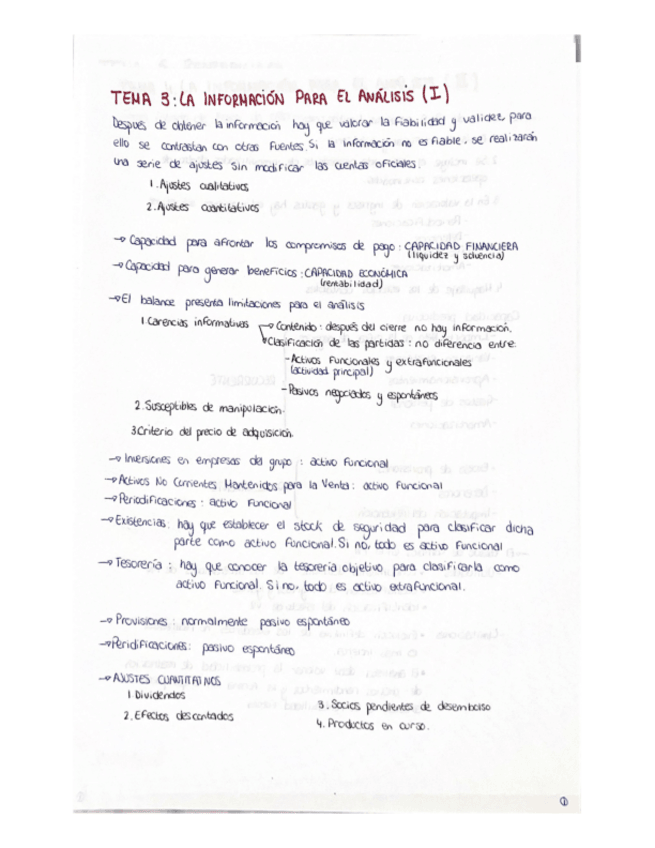 TEMA 3: LA INFORMACIÓN PARA EL ANÁLISIS (I)
Después de obtener la información hay que valorar la fiabilidad y validez, para
ello se contrastan con otras fuentes. Si la información no es fiable, se realizarán
una serie de ajustes sin modificar las cuentas oficiales.
1. Ajustes cualitativos
2. Ajustes cuantitativos
→ Capacidad para afrontar los compromisos de pago: CAPACIDAD FINANCIERA
(liquidez y solvencia)
→ Capacidad para generar beneficios: CAPACIDAD ECONÓMICA
(rentabilidad)
→ El balance presenta limitaciones para el análisis
1. Carencias informativas → Contenido: después del cierre no hay información.
Clasificación de las partidas: no diferencia entre:
- Activos funcionales y extrafuncionales
(actividad principal)
- Pasivos negociados y espontáneos
2. Susceptibles de manipulación.
3. Criterio del precio de adquisición.
→ Inversiones en empresas del grupo: activo funcional
→ Activos No Corrientes Mantenidos para la Venta: activo funcional
→ Periodificaciones: activo funcional
→ Existencias: hay que establecer el stock de seguridad para clasificar dicha
parte como activo funcional. Si no, todo es activo funcional
→ Tesorería: hay que conocer la tesorería objetivo para clasificarla como
activo funcional. Si no, todo es activo extrafuncional.
→ Provisiones: normalmente pasivo espontáneo
→ Peridificaciones: pasivo espontáneo
→ AJUSTES CUANTITATIVOS
1. Dividendos
2. Efectos descontados
3. Socios pendientes de desembolso
4. Productos en curso.
1